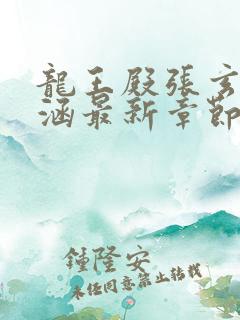 龍王殿張玄
涵最新章節
鍾隆安
未任同意禁止轉載